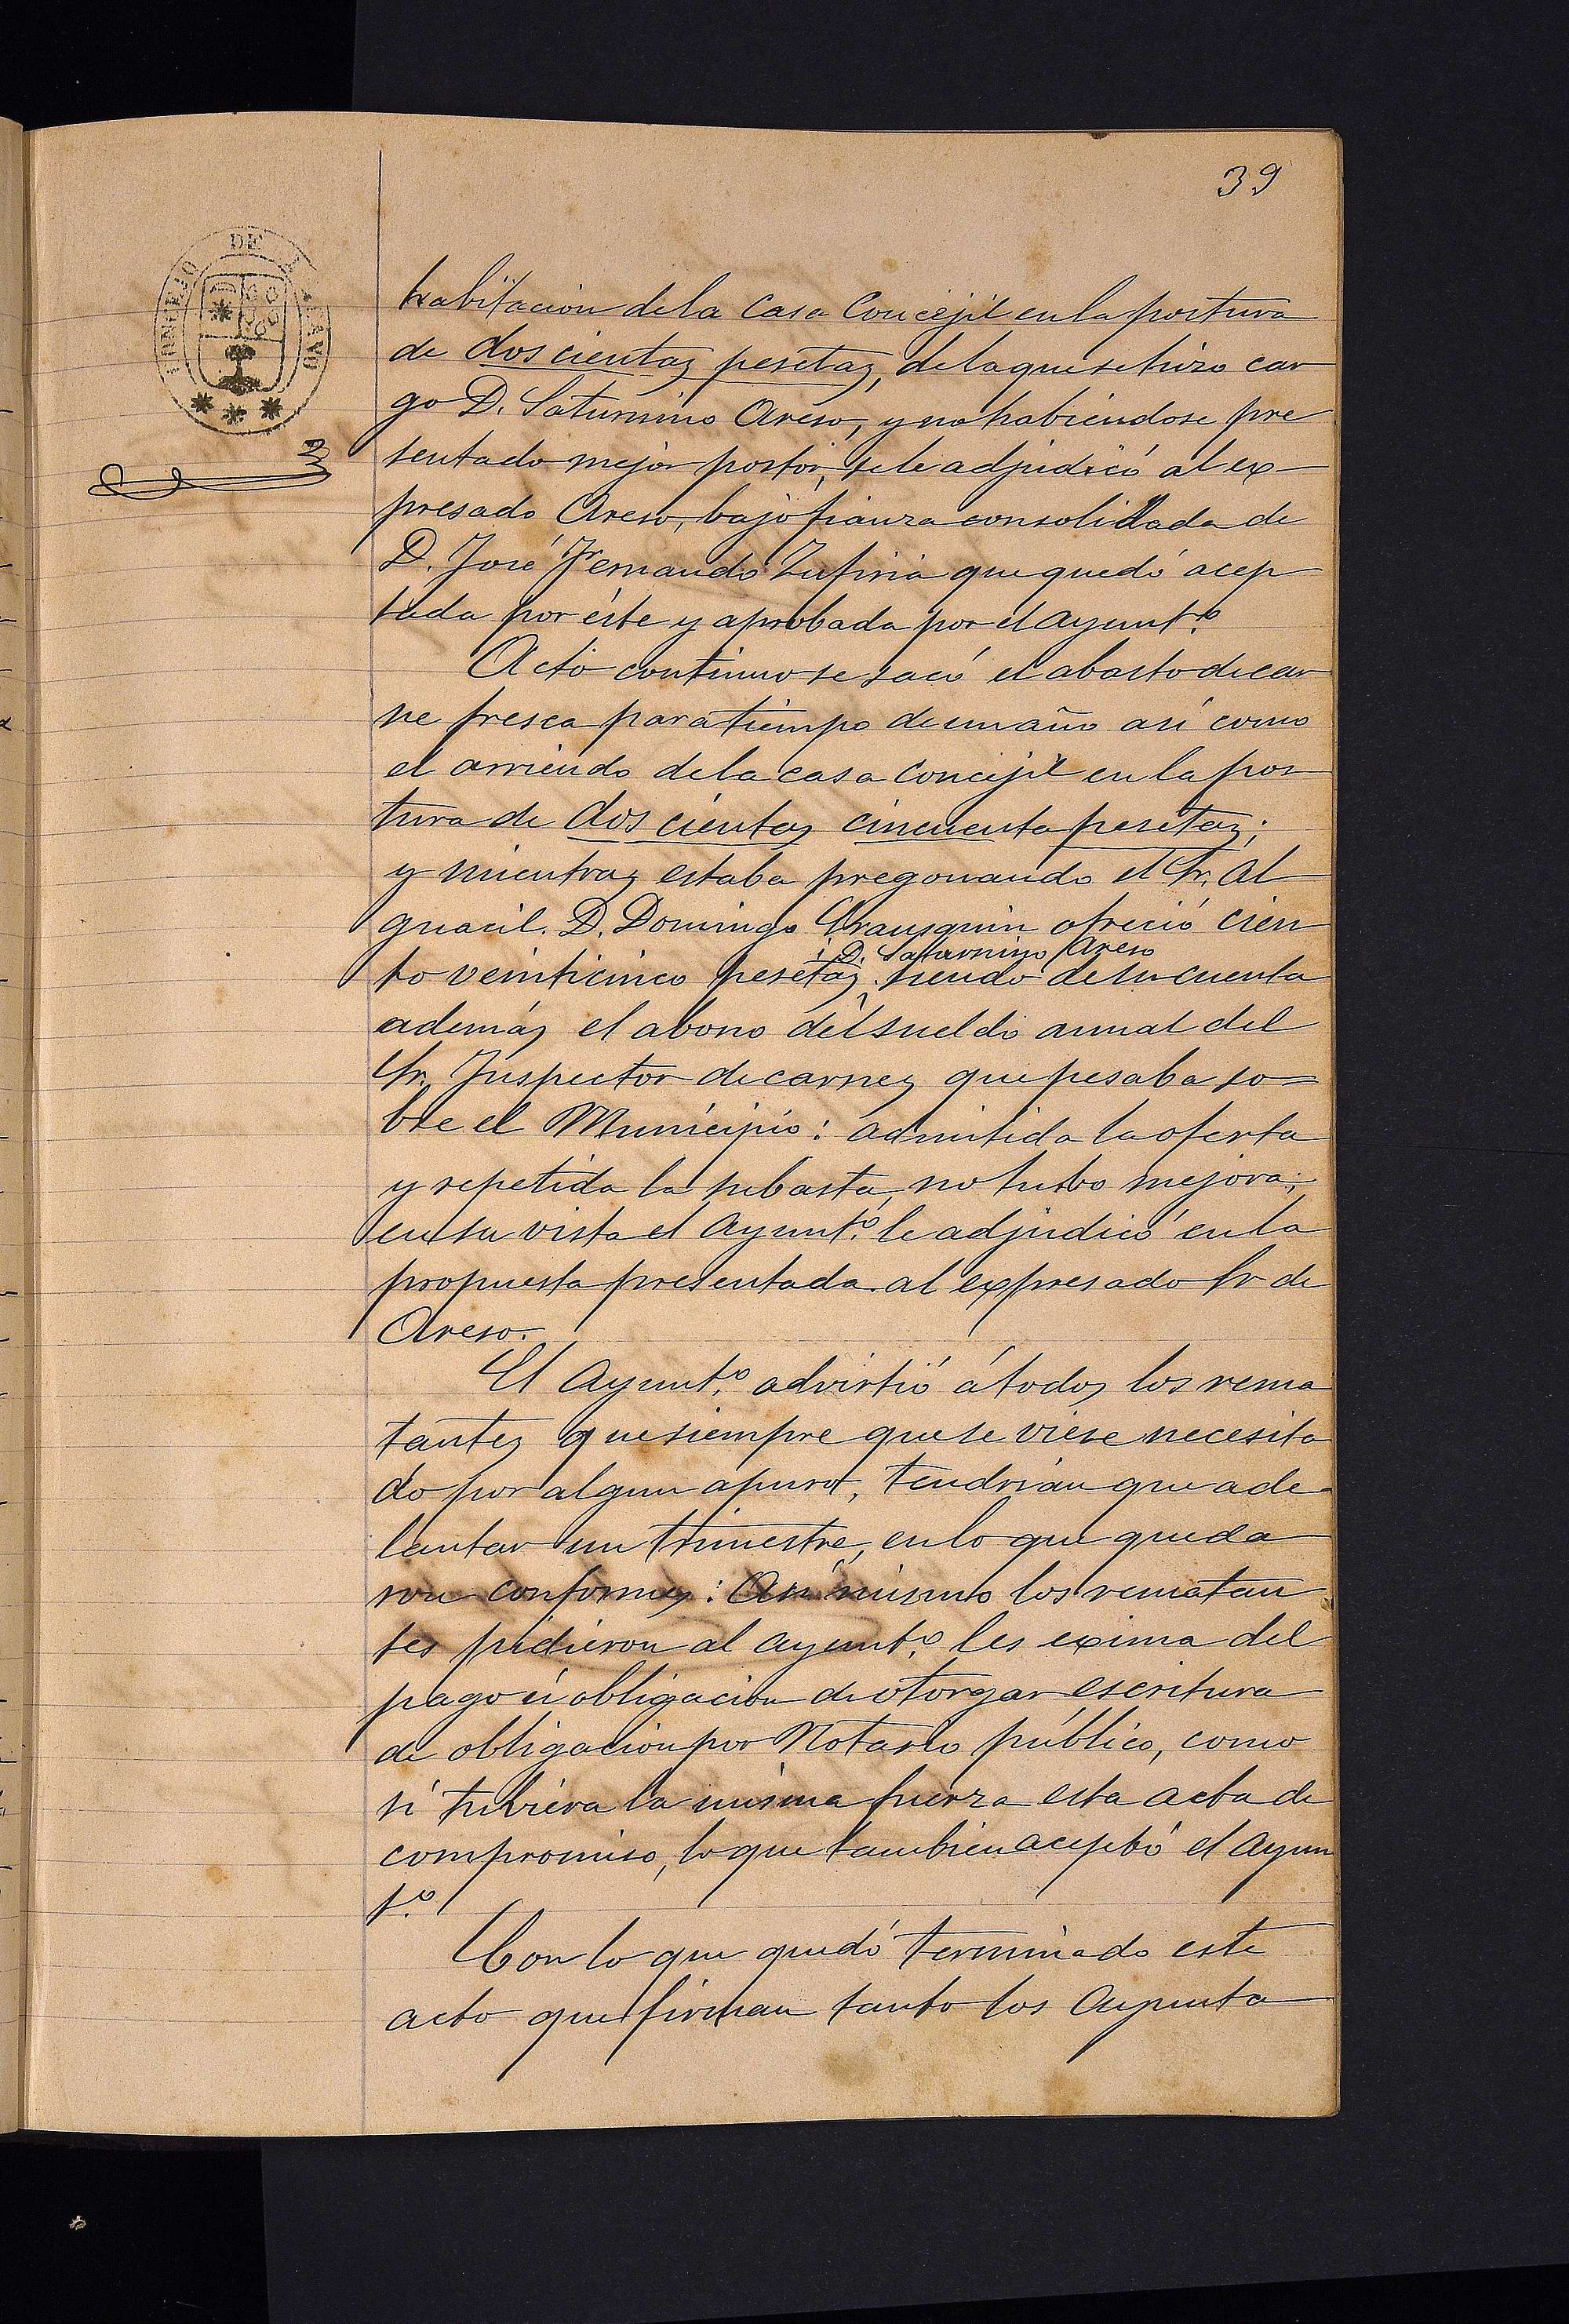 39
CONCEJO DE
habitacion de la casa Concejil en la postura
de dos cientas pesetas, de la que se hizo car
go D. Saturnino Areso, y no habiendose pre
sentado mejor postor, se le adjudicó al ex-
presado Areso, bajo fianza consolidada de
D. José Fernando Zufiria que quedó acep
tada por éste y aprobada por el Ayunt.º
Acto continuo se sacó el abasto de car
ne fresca para tiempo de un año así como
el arriendo de la casa concejil en la pos
tura de dos cientas cincuenta pesetas;
y mientras estaba pregonando el Sr. Al
guacil. D. Domingo Urausquin ofreció cien
i D. Saturnino Areso
to veinticinco pesetas. siendo de su cuenta
además el abono del sueldo anual del
Sr. Inspector de carnes que pesaba so=
bre el Municipio: admitida la oferta
y repetida la subasta, no tubo mejora;
en su vista el Ayunt.º le adjudicó en la
propuesta presentada al expresado Sr de
Areso.
El Ayunt.º advirtió á todos los rema
tantes que siempre que se viese necesita
do por algun apuro, tendrian que ade
lantar un trimestre, en lo que queda
ron conformes: Asi mismo los rematan
tes pidieron al Ayunt.º les exima del
pago ú obligacion de otorgar escritura
de obligacion por Notario público, como
si tubiera la misma fuerza esta acta de
compromiso, lo que tambien aceptó el Ayun
t.º
Con lo que quedó terminado este
acto que firman tanto los Ayunta